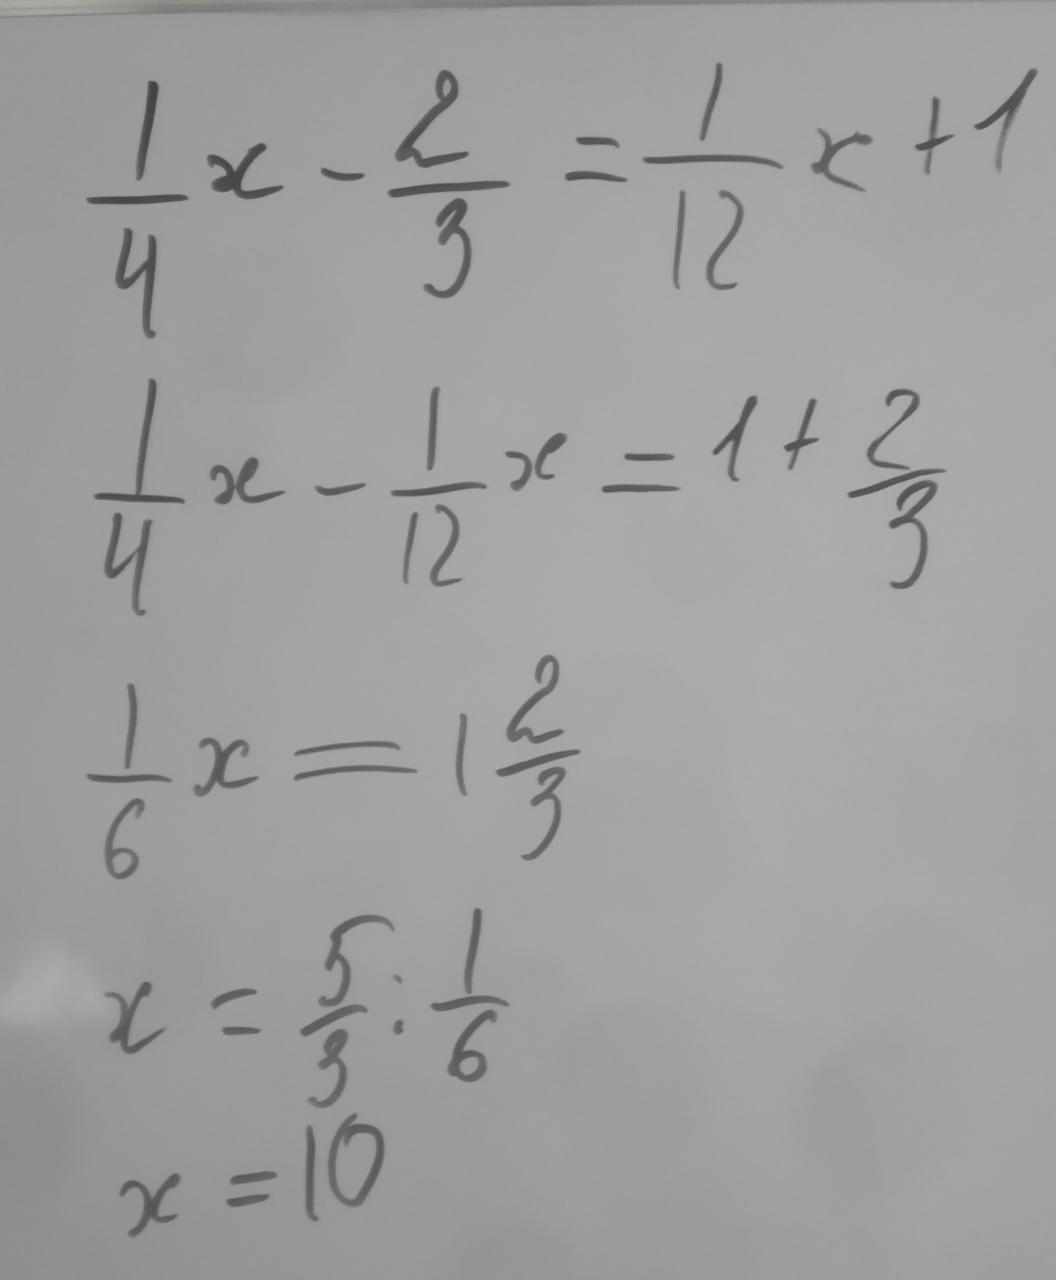 1/4 x - 2/3 = 1/12 x + 1
1/4 x - 1/12 x = 1 + 2/3
1/6 x = 1 2/3
x = 5/3 : 1/6
x = 10